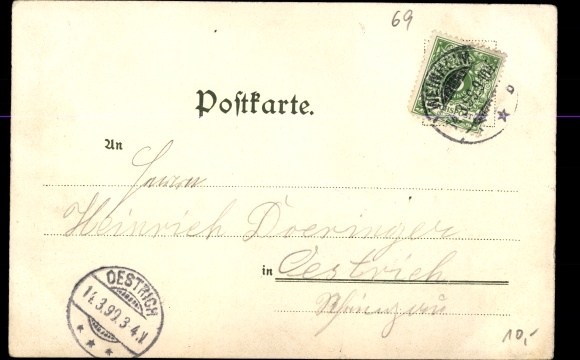 69
WEINHEIM
Postkarte.
An
Herrn
Heinrich Doeringer
in Oestrich
Rheingau
OESTRICH
14.3.99.3-4.N
10,-